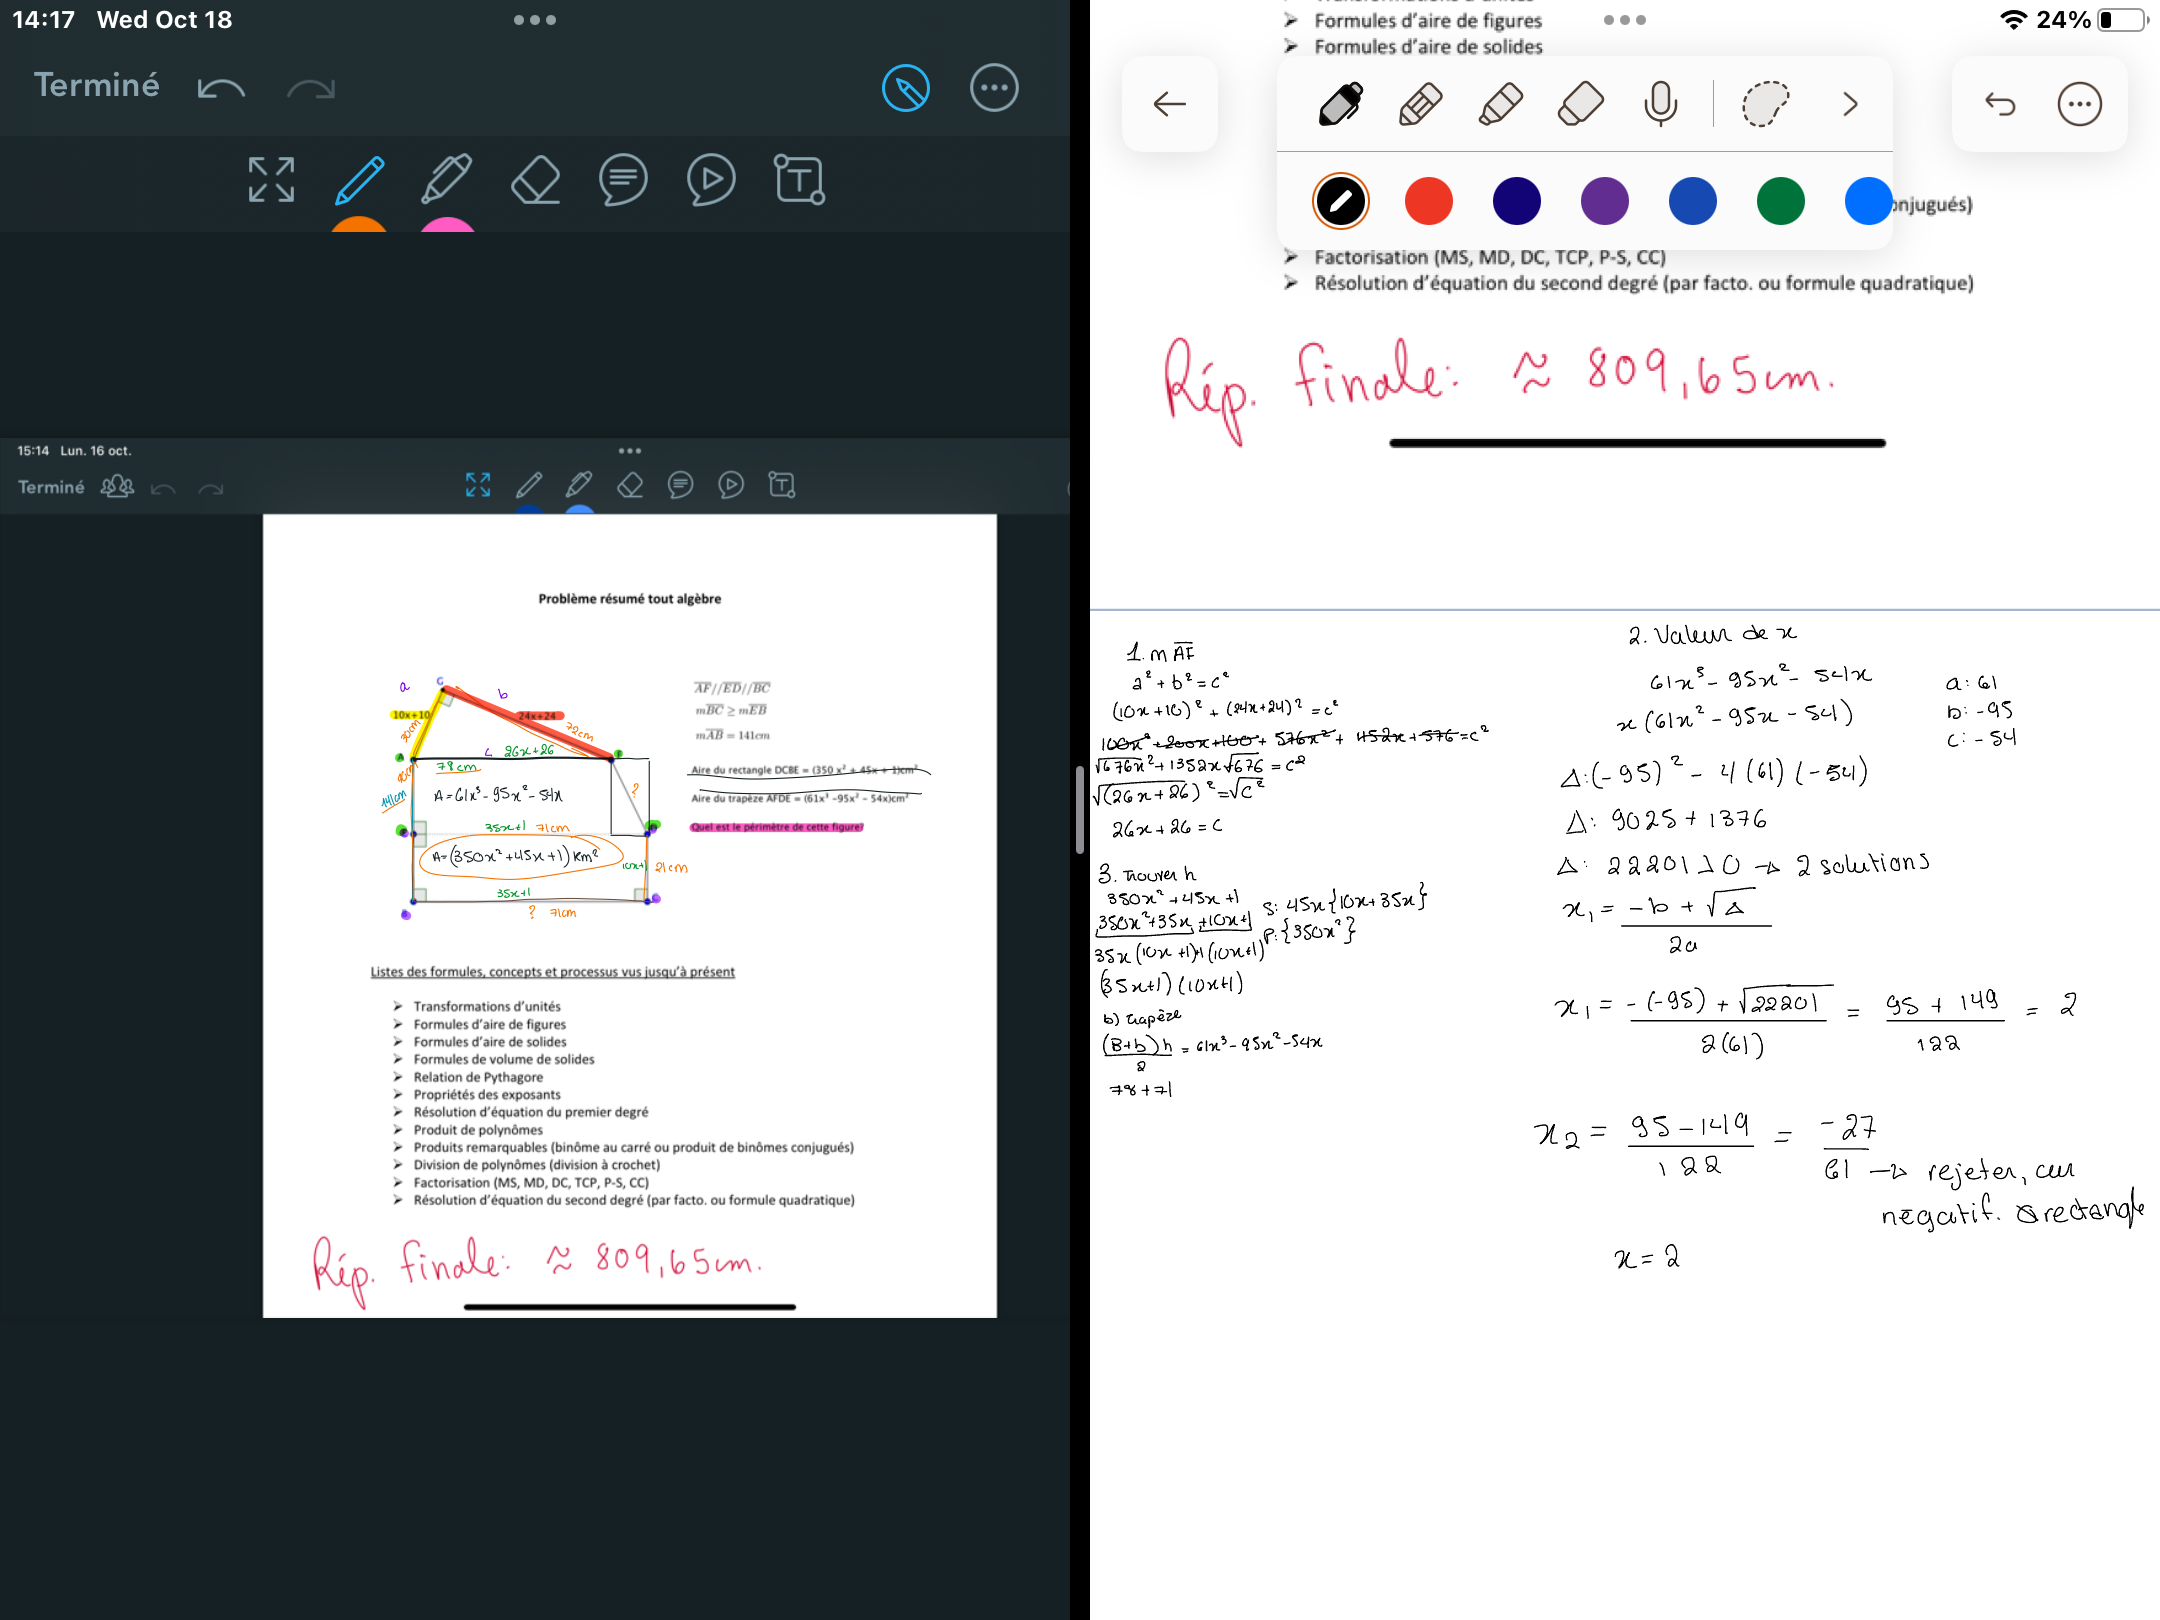 14:17 Wed Oct 18
Terminé
15:14 Lun. 16 oct.
Terminé
Problème résumé tout algèbre
G
a
b
10x+10
24x+24
30cm
72cm
c 26x+26
A
F
78cm
141cm
A=61x³-95x²-54x
?
35x+1 71cm
A=(350x²+45x+1) Km²
10x+1 21cm
35x+1
? 71cm
AF//ED//BC
mBC ≥ mEB
mAB = 141cm
Aire du rectangle DCBE = (350 x² + 45x + 1)cm²
Aire du trapèze AFDE = (61x³ –95x² – 54x)cm²
Quel est le périmètre de cette figure?
Listes des formules, concepts et processus vus jusqu'à présent
➢ Transformations d'unités
➢ Formules d'aire de figures
➢ Formules d'aire de solides
➢ Formules de volume de solides
➢ Relation de Pythagore
➢ Propriétés des exposants
➢ Résolution d'équation du premier degré
➢ Produit de polynômes
➢ Produits remarquables (binôme au carré ou produit de binômes conjugués)
➢ Division de polynômes (division à crochet)
➢ Factorisation (MS, MD, DC, TCP, P-S, CC)
➢ Résolution d'équation du second degré (par facto. ou formule quadratique)
Rép. finale: ≈ 809,65cm.
24%
➢ Formules d'aire de figures
➢ Formules d'aire de solides
onjugués)
➢ Factorisation (MS, MD, DC, TCP, P-S, CC)
➢ Résolution d'équation du second degré (par facto. ou formule quadratique)
Rép. finale: ≈ 809,65cm.
1. m AF
a² + b² = c²
(10x+10)² + (24x+24)² = c²
100x²+200x+100+ 576x²+ 1152x+576=c²
√676x²+1352x√676 = c²
√(26x+26)²=√c²
26x+26 = c
3. Trouver h
350x²+45x+1
350x²+35x+10x+1
S: 45x{10x+35x}
P: {350x²}
35x(10x+1)+1(10x+1)
(35x+1)(10x+1)
b) trapèze
(B+b)h/2 = 61x³-95x²-54x
78+71
2. Valeur de x
61x³-95x²-54x
x(61x²-95x-54)
a: 61
b: -95
c: -54
Δ:(-95)²-4(61)(-54)
Δ: 9025+1376
Δ: 22201>0 → 2 solutions
x₁ = -b+√Δ / 2a
x₁ = -(-95)+√22201 / 2(61) = 95+149 / 122 = 2
x₂ = 95-149 / 122 = -27/61 → rejeter, car
négatif. rectangle
x = 2